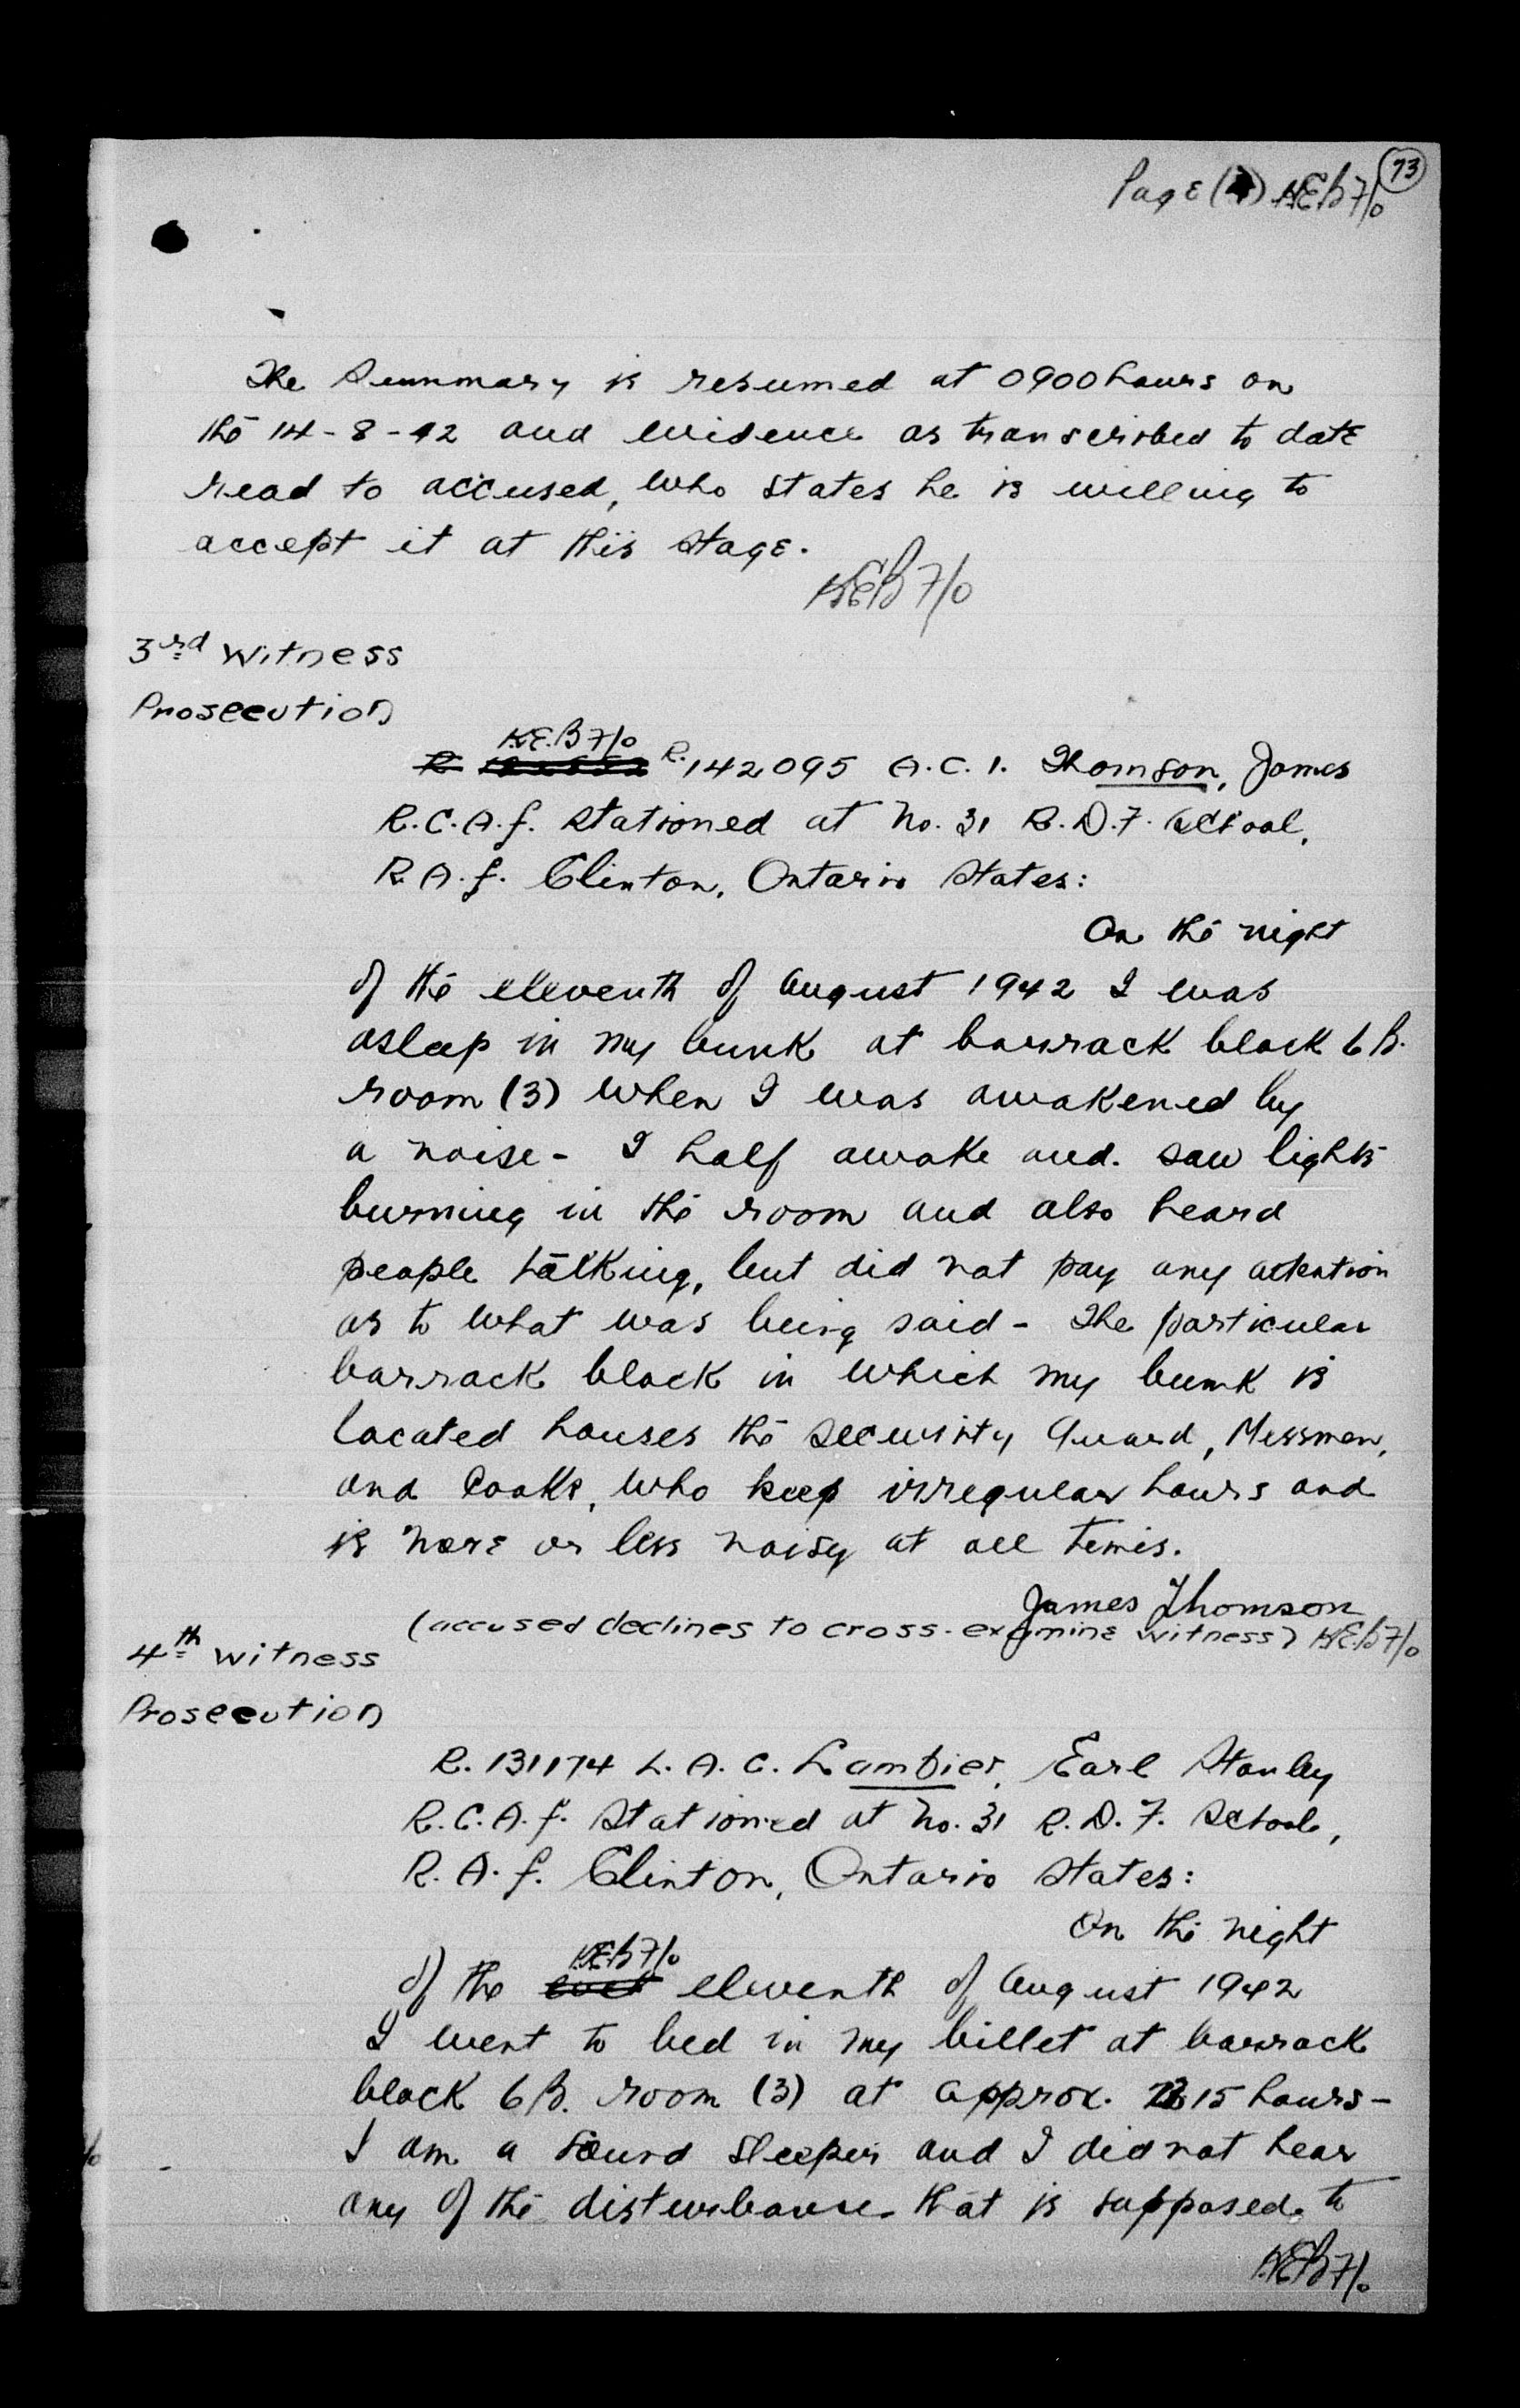 73
Page ( ) K.E.B F/O
The Summary is resumed at 0900 hours on
the 14-8-42 and evidence as transcribed to date
read to accused, who states he is willing to
accept it at this stage.
K.E.B F/O
3rd Witness
Prosecution
K.E.B F/O
R R.142095 A.C.1. Thomson, James
R.C.A.F. stationed at No. 31 R.D.F. School,
R.A.F. Clinton, Ontario states:
On the night
of the eleventh of August 1942 I was
asleep in my bunk at barrack block 6B.
room (3) when I was awakened by
a noise - I half awoke and. saw lights
burning in the room and also heard
people talking, but did not pay any attention
as to what was being said - The particular
barrack block in which my bunk is
located houses the Security Guard, Messmen,
and Cooks, who keep irregular hours and
is more or less noisy at all times.
James Thomson
(accused declines to cross-examine witness) K.E.B F/O
4th Witness
Prosecution
R.131174 L.A.C. Lambier, Earl Stanley
R.C.A.F. stationed at No. 31 R.D.F. School,
R.A.F. Clinton, Ontario states:
On the night
K.E.B F/O
of the eleventh of August 1942
I went to bed in my billet at barrack
block 6B. room (3) at approx. 2315 hours -
I am a sound sleeper and I did not hear
any of the disturbance that is supposed to
K.E.B F/O